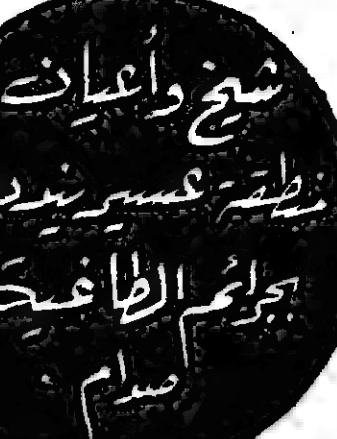 شيخ وأعيان
منطقة عسير تندد
بجرائم الطاغية
صدام .